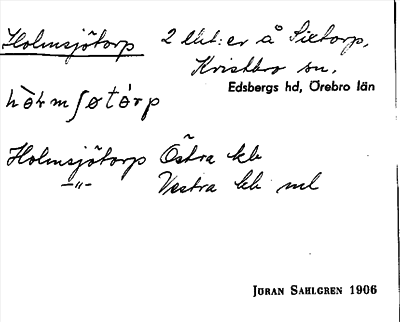 Holmsjötorp 2 lht:er å Sixtorp,
Kvistbro sn.
Edsbergs hd, Örebro län
Holmsjötorp Östra kb
—„— Västra kb ml
JÖRAN SAHLGREN 1906